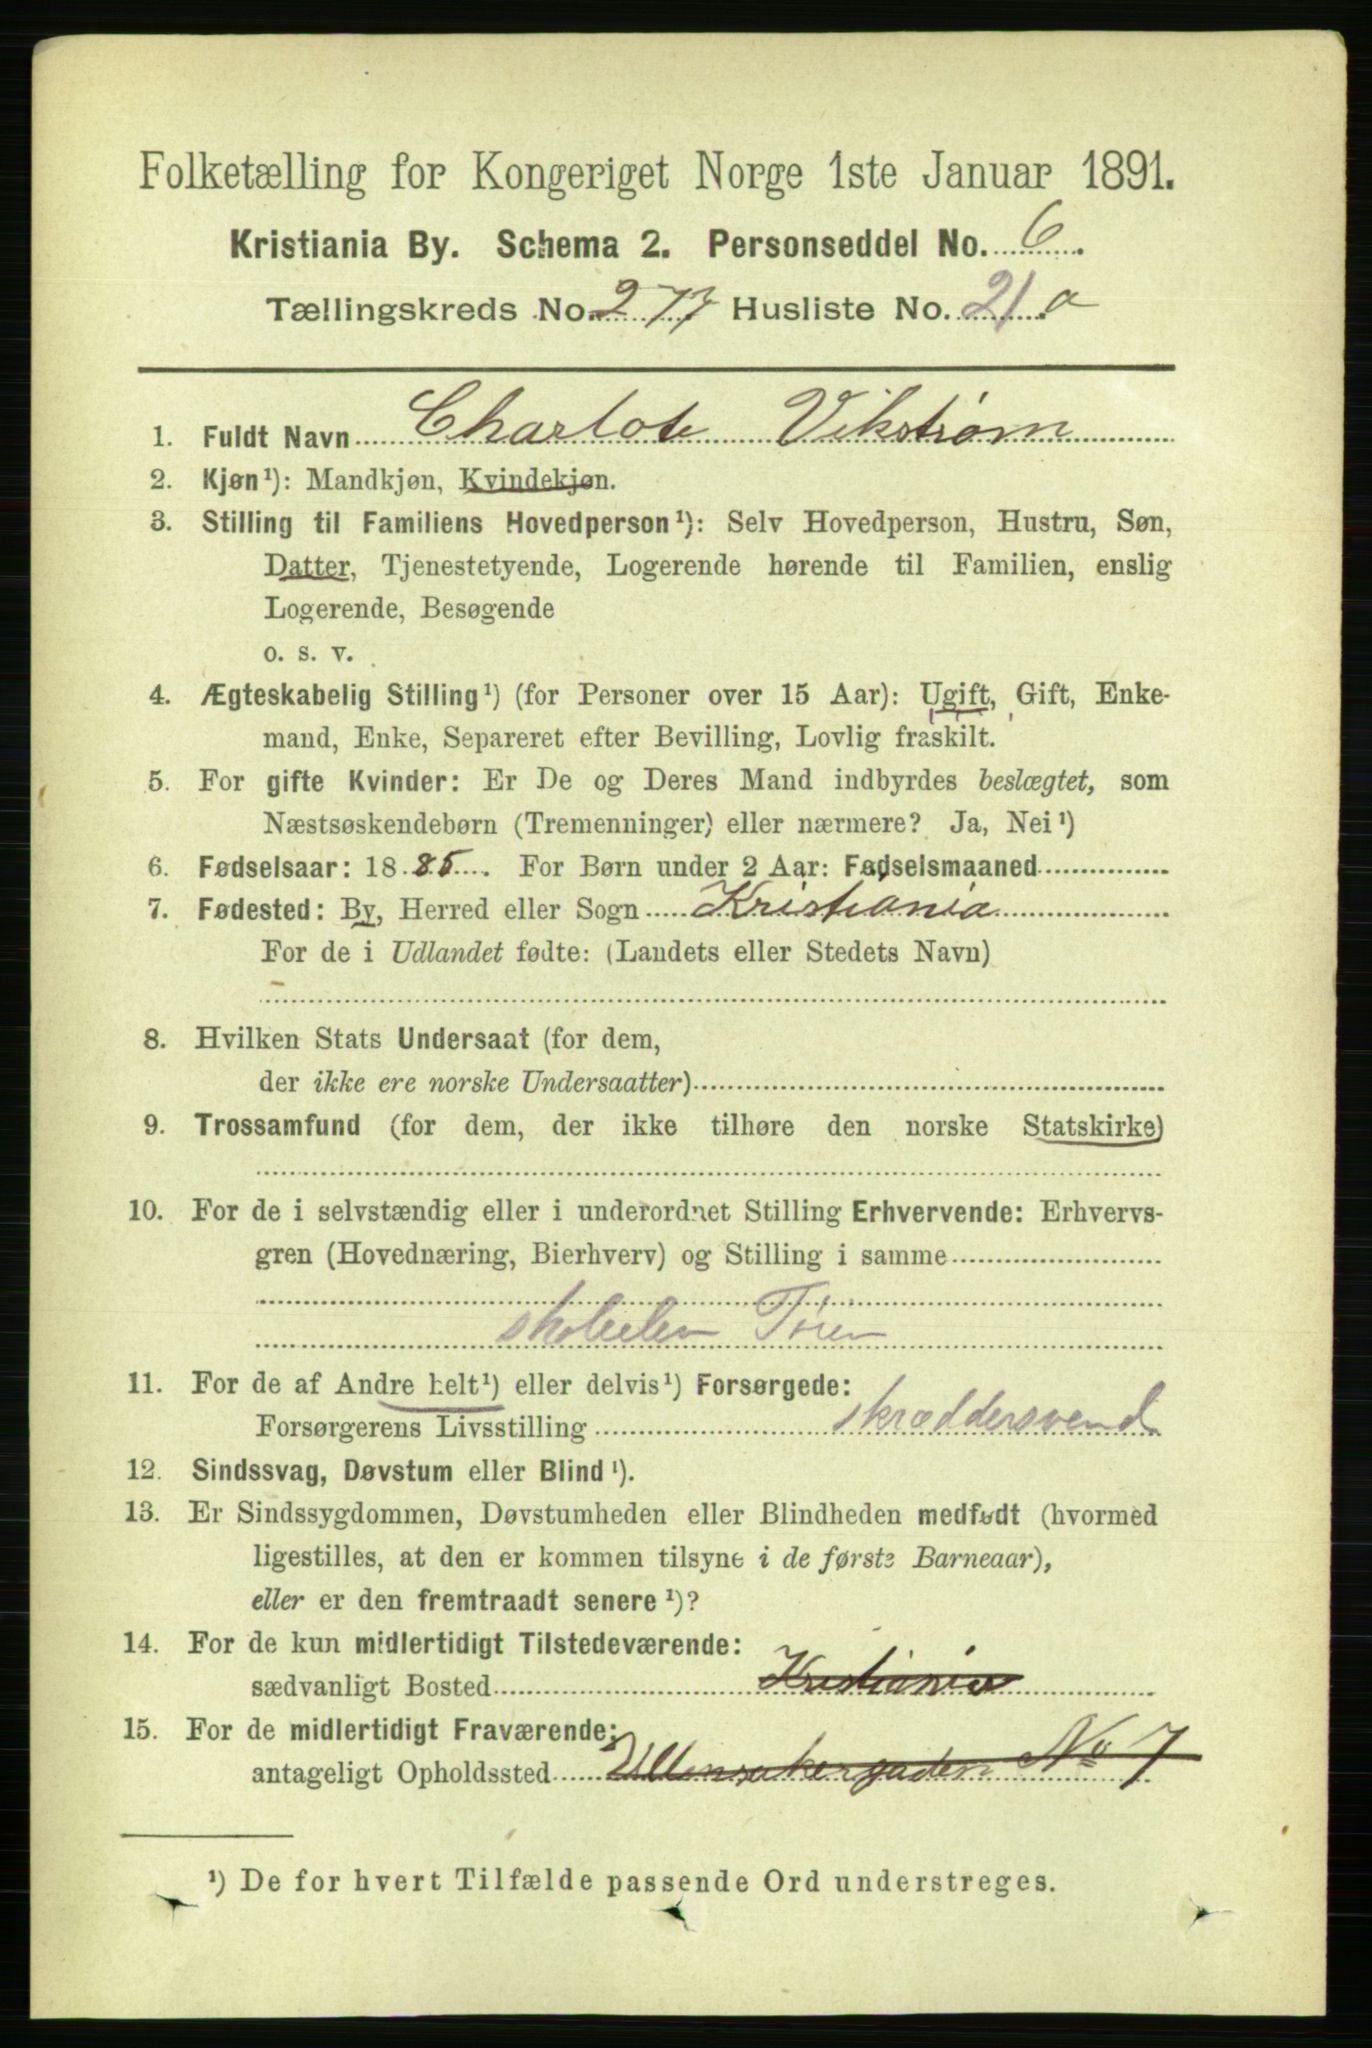 Folketælling for Kongeriget Norge 1ste Januar 1891.
Kristiania By. Schema 2. Personseddel No. 6.
Tællingskreds No. 273 Husliste No. 21 a
1. Fuldt Navn Charlote Vikstrøm
2. Kjøn¹): Mandkjøn, Kvindekjøn.
3. Stilling til Familiens Hovedperson¹): Selv Hovedperson, Hustru, Søn,
Datter, Tjenestetyende, Logerende hørende til Familien, enslig
Logerende, Besøgende
o. s. v.
4. Ægteskabelig Stilling¹) (for Personer over 15 Aar): Ugift, Gift, Enke-
mand, Enke, Separeret efter Bevilling, Lovlig fraskilt.
5. For gifte Kvinder: Er De og Deres Mand indbyrdes beslægtet, som
Næstsøskendebørn (Tremenninger) eller nærmere? Ja, Nei¹)
6. Fødselsaar: 1885. For Børn under 2 Aar: Fødselsmaaned
7. Fødested: By, Herred eller Sogn Kristiania
For de i Udlandet fødte: (Landets eller Stedets Navn)
8. Hvilken Stats Undersaat (for dem,
der ikke ere norske Undersaatter)
9. Trossamfund (for dem, der ikke tilhøre den norske Statskirke)
10. For de i selvstændig eller i underordnet Stilling Erhvervende: Erhvervs-
gren (Hovednæring, Bierhverv) og Stilling i samme
11. For de af Andre helt¹) eller delvis¹) Forsørgede:
Forsørgerens Livsstilling skræddersvend
12. Sindssvag, Døvstum eller Blind¹).
13. Er Sindssygdommen, Døvstumheden eller Blindheden medfødt (hvormed
ligestilles, at den er kommen tilsyne i de første Barneaar),
eller er den fremtraadt senere¹)?
14. For de kun midlertidigt Tilstedeværende:
sædvanligt Bosted Kristiania
15. For de midlertidigt Fraværende:
antageligt Opholdssted Ullensakergaden No 7
¹) De for hvert Tilfælde passende Ord understreges.